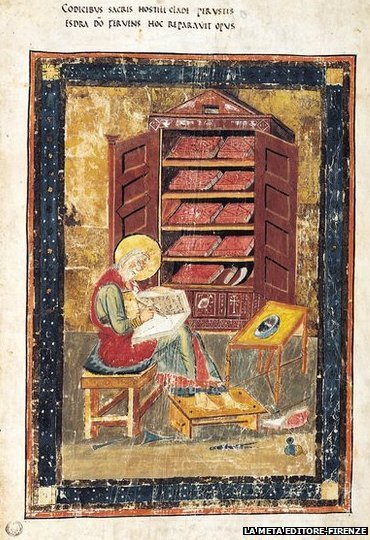 CODICIBUS SACRIS HOSTILI CLADE PERUSTIS
ESDRA D̄O FERVENS HOC REPARAVIT OPUS
LA META EDITORE-FIRENZE